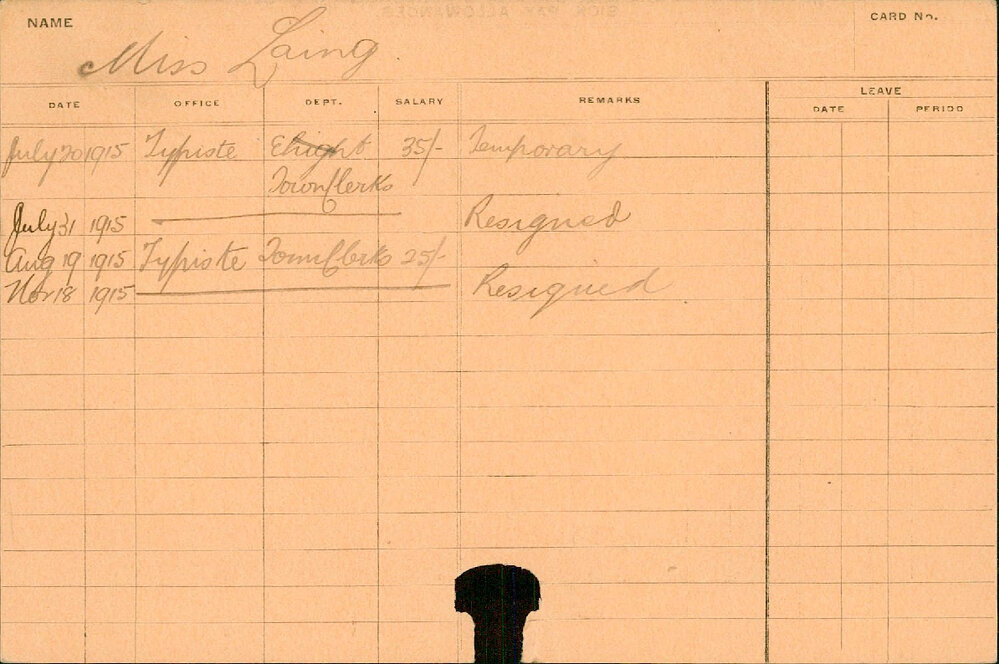 NAME
Miss Laing
CARD No.
DATE OFFICE DEPT. SALARY REMARKS LEAVE
DATE PERIOD
July 20 1915 Typiste Elight 35/- Temporary
Town Clerks
July 31 1915 Resigned
Aug 19 1915 Typiste Town Clerks 25/-
Nov 18 1915 Resigned